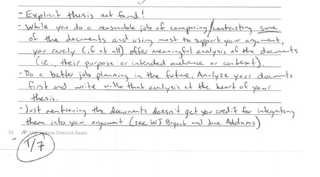 - Explicit thesis not found!
- While you do a reasonable job of comparing/contrasting some
of the documents and using most to support your argument,
you rarely (if at all) offer meaningful analysis of the documents
(i.e., their purpose or intended audience or context)
- Do a better job planning in the future. Analyze your documents
first and write with that analysis at the heart of your
thesis.
- Just mentioning the documents doesn't get you credit for integrating
them into your argument (see WJ Bryan and Jane Addams)
Practice Exam
1/7